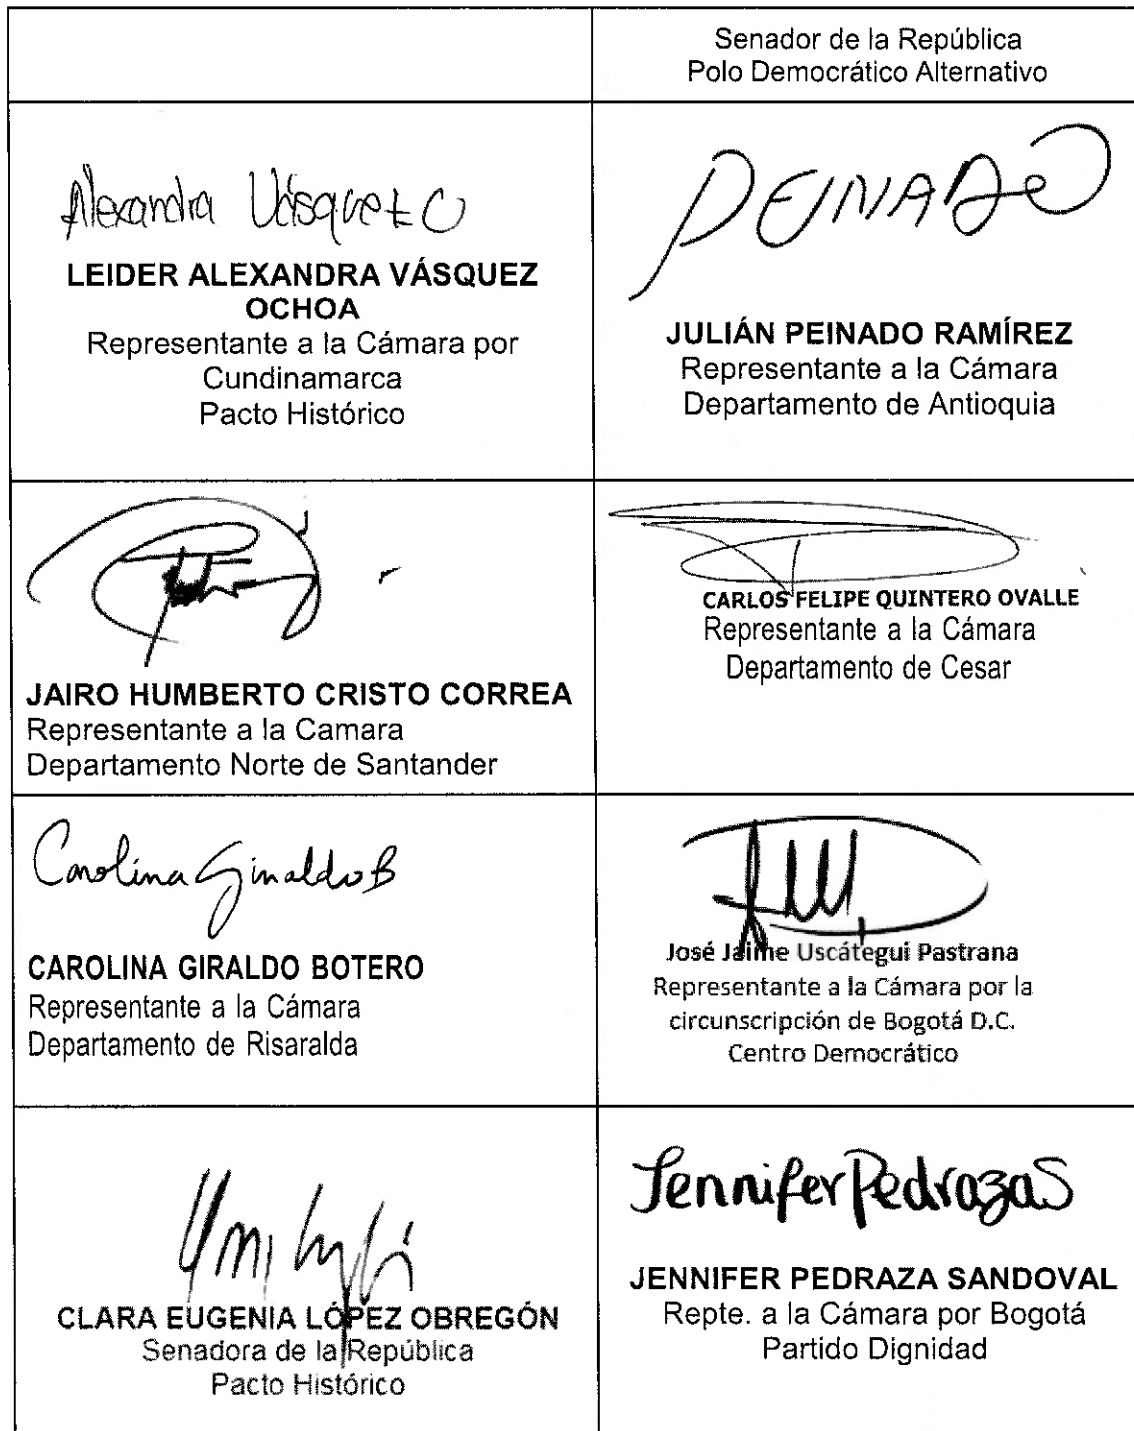 Senador de la República
Polo Democrático Alternativo
Alexandra Vásquez O
LEIDER ALEXANDRA VÁSQUEZ
OCHOA
Representante a la Cámara por
Cundinamarca
Pacto Histórico
PEINADO
JULIÁN PEINADO RAMÍREZ
Representante a la Cámara
Departamento de Antioquia
JAIRO HUMBERTO CRISTO CORREA
Representante a la Camara
Departamento Norte de Santander
CARLOS FELIPE QUINTERO OVALLE
Representante a la Cámara
Departamento de Cesar
Carolina Giraldo B
CAROLINA GIRALDO BOTERO
Representante a la Cámara
Departamento de Risaralda
José Jaime Uscátegui Pastrana
Representante a la Cámara por la
circunscripción de Bogotá D.C.
Centro Democrático
CLARA EUGENIA LÓPEZ OBREGÓN
Senadora de la República
Pacto Histórico
Jennifer Pedraza S
JENNIFER PEDRAZA SANDOVAL
Repte. a la Cámara por Bogotá
Partido Dignidad